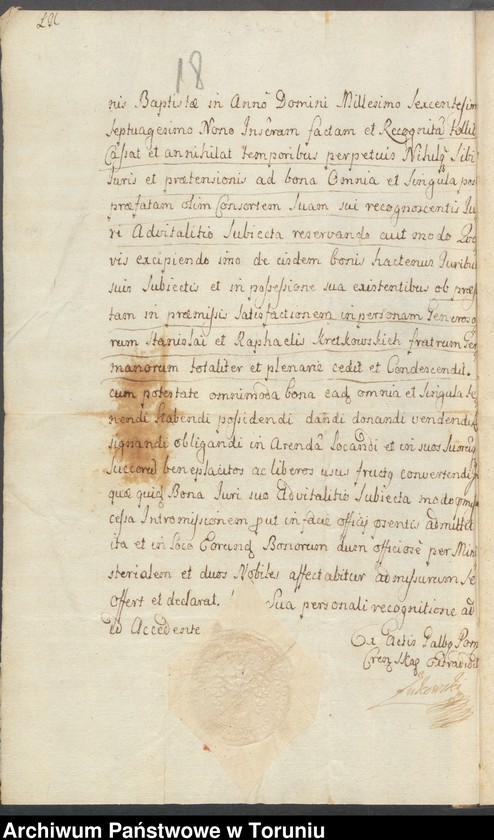 18
nis Baptistæ in Anno Domini Millesimo Sexcentesim
Septuagesimo Nono Inscram factam et Recognitã tollit
Cassat et annihilat temporibus perpetuis Nihilq Sibi
Iuris et prætensionis ad bona Omnia et Singula post
præfatam olim Consortem Suam sui recognoscentis Iu
ri Advitalitio Subiecta reservando aut modo Quo
vis excipiendo imo de eisdem bonis hactenus Iuribus
suis Subiectis et in possessione sua existentibus ob præs
tam in præmissis satisfactionem in personam Generoso
rum Stanislai et Raphaelis Kretkowskich fratrum Ger
manorum totaliter et plenarie cedit et Condescendit.
cum potestate omnimoda bona eadq omnia et Singula te
nendi habendi possidendi dandi donandi vendendi
signandi obligandi in Arendã Locandi et in suos Suorumq
Succorum beneplacitos ac liberos usus fructq convertendi
quæ quidq Bona Iuri suo Advitalitio Subiecta modo
cessa Intromissionem put in facie officij præsentis admitta
ita et in Loco Eorundq Bonorum dum officiose per Mini
sterialem et duos Nobiles affectabitur admissurum se
offert et declarat. Sua personali recognitione ad
id Accedente
Ex Actis
extradit